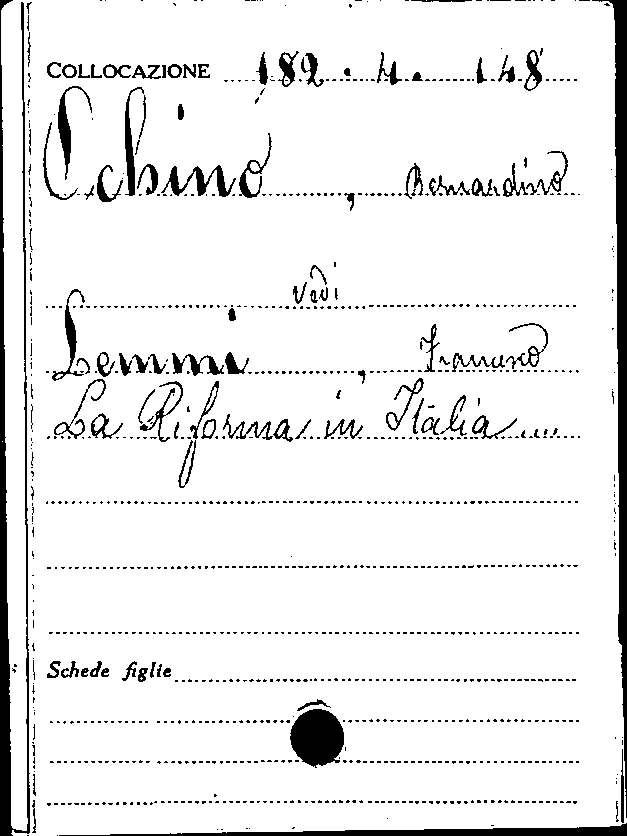 COLLOCAZIONE 182.4.148
Ochino, Bernardino
Vedi
Lemmi, Francesco
La Riforma in Italia ....
Schede figlie